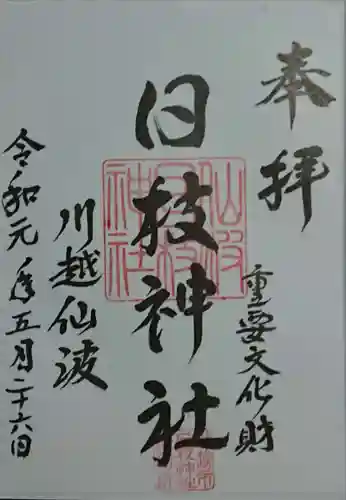 奉拝
重要文化財
日枝神社
川越仙波
令和元年五月二十六日
仙波日枝神社